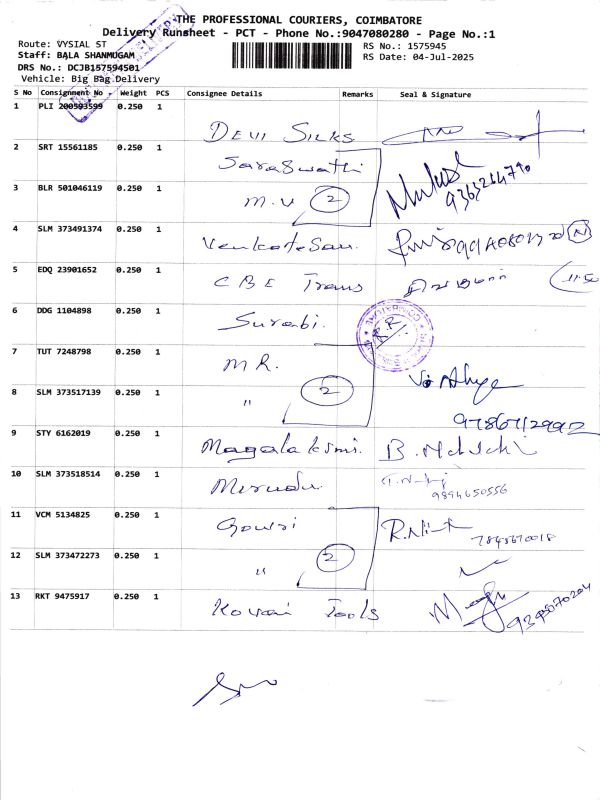 THE PROFESSIONAL COURIERS, COIMBATORE
Delivery Runsheet - PCT - Phone No.:9047080280 - Page No.:1
Route: VYSIAL ST RS No.: 1575945
Staff: BALA SHANMUGAM RS Date: 04-Jul-2025
DRS No.: DCJB157594501
Vehicle: Big Bag Delivery
S No Consignment No Weight PCS Consignee Details Remarks Seal & Signature
1 PLI 200593599 0.250 1 DEVI SILKS
2 SRT 15561185 0.250 1 Saraswathi
3 BLR 501046119 0.250 1 M.V 2
4 SLM 373491374 0.250 1 Venkatesan.
5 EDQ 23901652 0.250 1 CBE Trans
6 DDG 1104898 0.250 1 Surabi.
7 TUT 7248798 0.250 1 M R.
8 SLM 373517139 0.250 1 " 2
9 STY 6162019 0.250 1 Magalaksmi.
10 SLM 373518514 0.250 1 Mirudu. 9894650556
11 VCM 5134825 0.250 1 Gowri
12 SLM 373472273 0.250 1 " 2
13 RKT 9475917 0.250 1 Kovai Tools